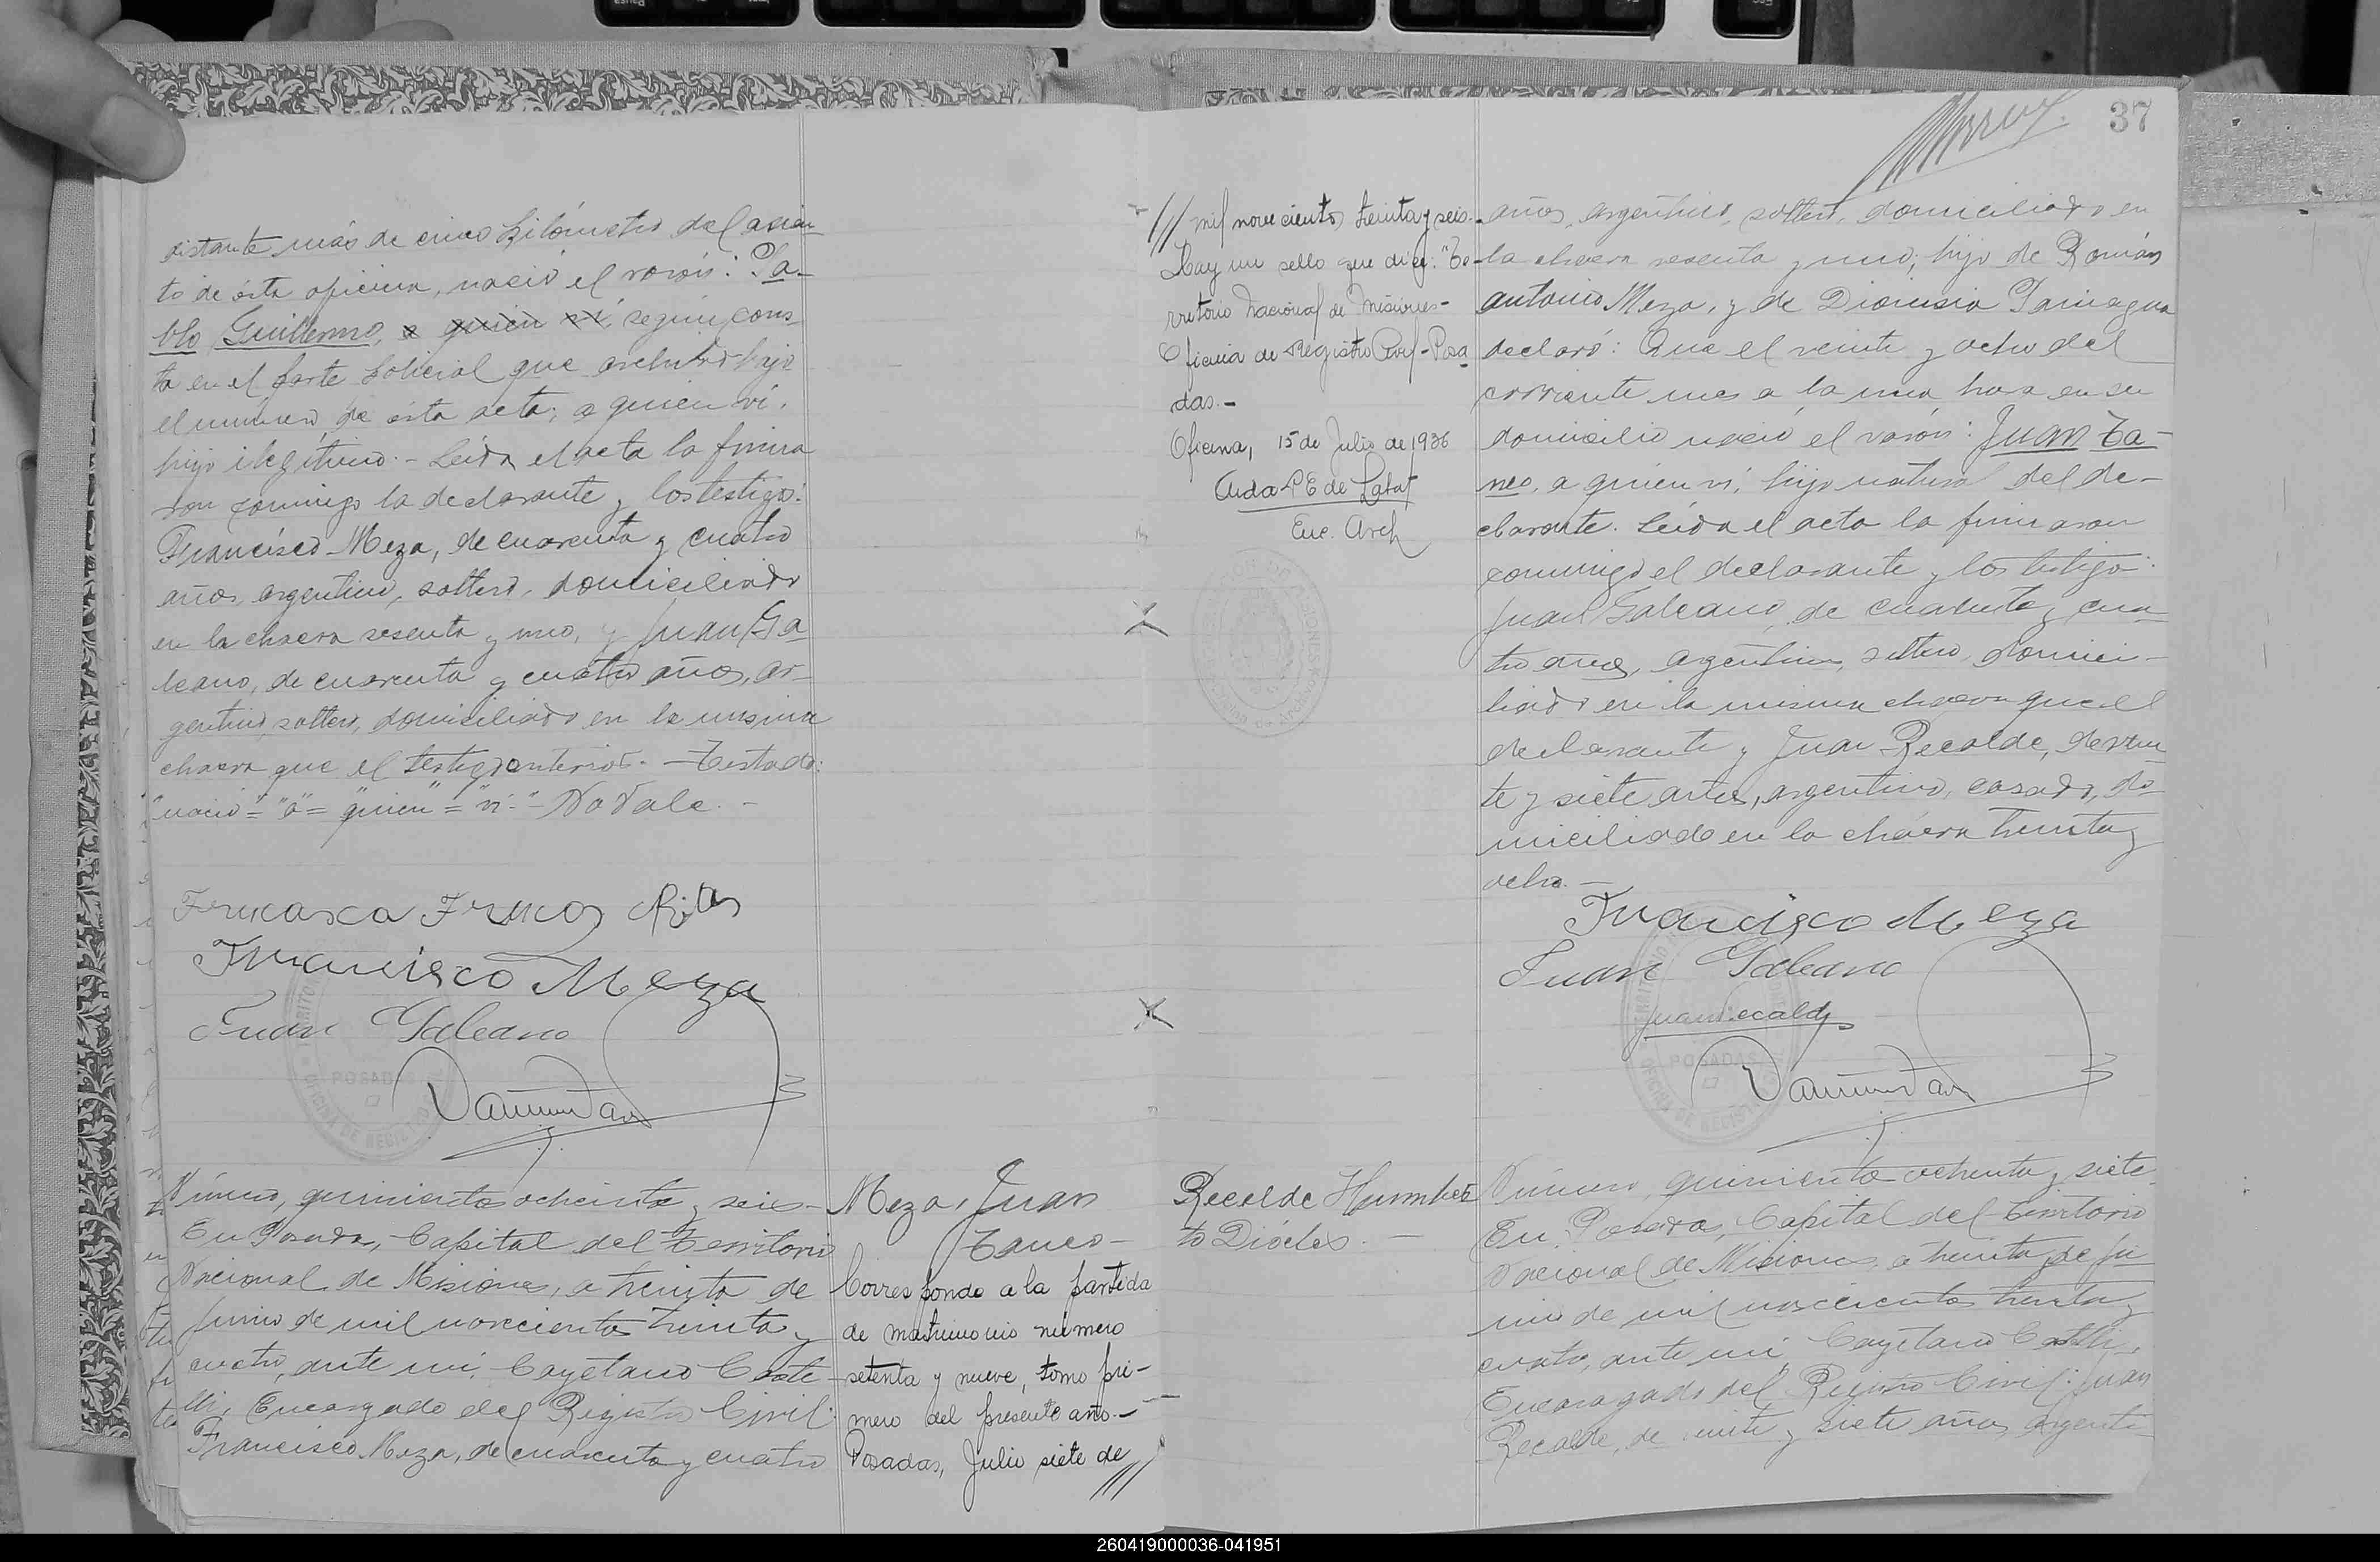 distante más de cinco kilómetros del asien
to de ésta oficina, nació el varón: Pa-
blo Guillermo, a quien ví, según cons
ta en el parte policial que archivo bajo
el número de ésta acta; a quien ví,
hijo ilegítimo.- Leída el acta la firma
ron conmigo la declarante y los testigos:
Francisco Meza, de cuarenta y cuatro
años, argentino, soltero, domiciliado
en la chacra sesenta y uno, y Juan Ga
leano, de cuarenta y cuatro años, ar-
gentino, soltero, domiciliado en la misma
chacra que el testigo anterior. - Testado:
"nació" = "a" = "quien" = "ví." - No Vale. -
Francisca
Francisco Meza
Juan Galeano
POSADAS
Número, quinientos ochenta y seis-
En Posadas, Capital del Territorio
Nacional de Misiones, a treinta de
Junio de mil novecientos treinta y
cuatro, ante mi, Cayetano Caste
lli, Encargado del Registro Civil:
Francisco Meza, de cuarenta y cuatro
Meza, Juan
Taneo-
Corresponde a la partida
de matrimonio número
setenta y nueve, tomo pri-
mero del presente año.-
Posadas, Julio siete de
///
37
/// mil novecientos treinta y seis.-
Hay un sello que dice: "Te-
rritorio Nacional de Misiones-
Oficina de Registro Civil-Posa
das.-
Oficina, 15 de Julio de 1936
Enc. Arch
años, argentino, soltero, domiciliado en
la chacra sesenta y uno, hijo de Román
Antonio Meza, y de Dionisia
declaró: Que el veinte y ocho del
corriente mes a la una hora en su
domicilio nació el varón: Juan Ta-
neo, a quien ví, hijo natural del de-
clarante. Leída el acta la firmaron
conmigo el declarante y los testigos:
Juan Galeano, de cuarenta y cua
tro años, argentino, soltero, domici-
liado en la misma chacra que el
declarante y Juan Recalde, de vein
te y siete años, argentino, casado, do
miciliado en la chacra treinta y
ocho.-
Francisco Meza
Juan Galeano
Juan Recalde
POSADAS
Recalde Humber
to Diócles. -
Número, quinientos ochenta y siete-
En Posadas, Capital del Territorio
Nacional de Misiones, a treinta de Ju
nio de mil novecientos treinta y
cuatro, ante mi Cayetano Castelli,
Encargado del Registro Civil: Juan
Recalde, de veinte y siete años, argenti
260419000036-041951